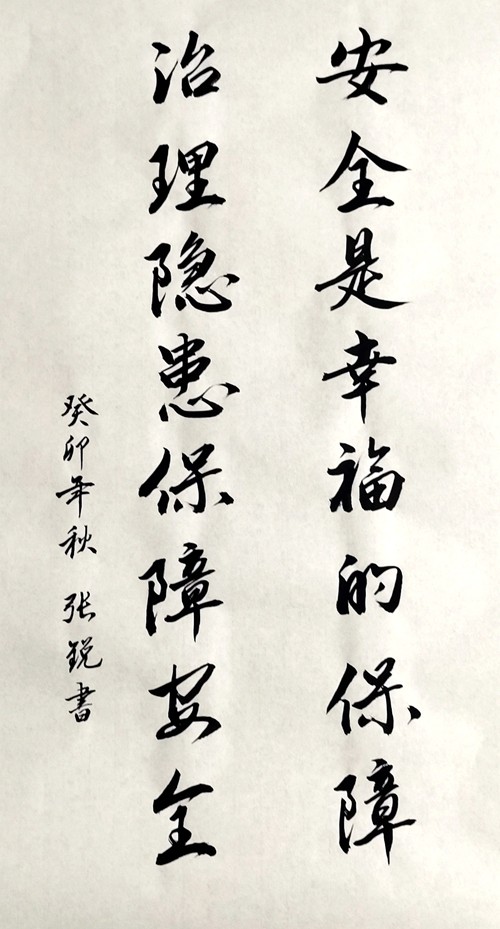 安全是幸福的保障
治理隐患保障安全
癸卯年秋 张锐書